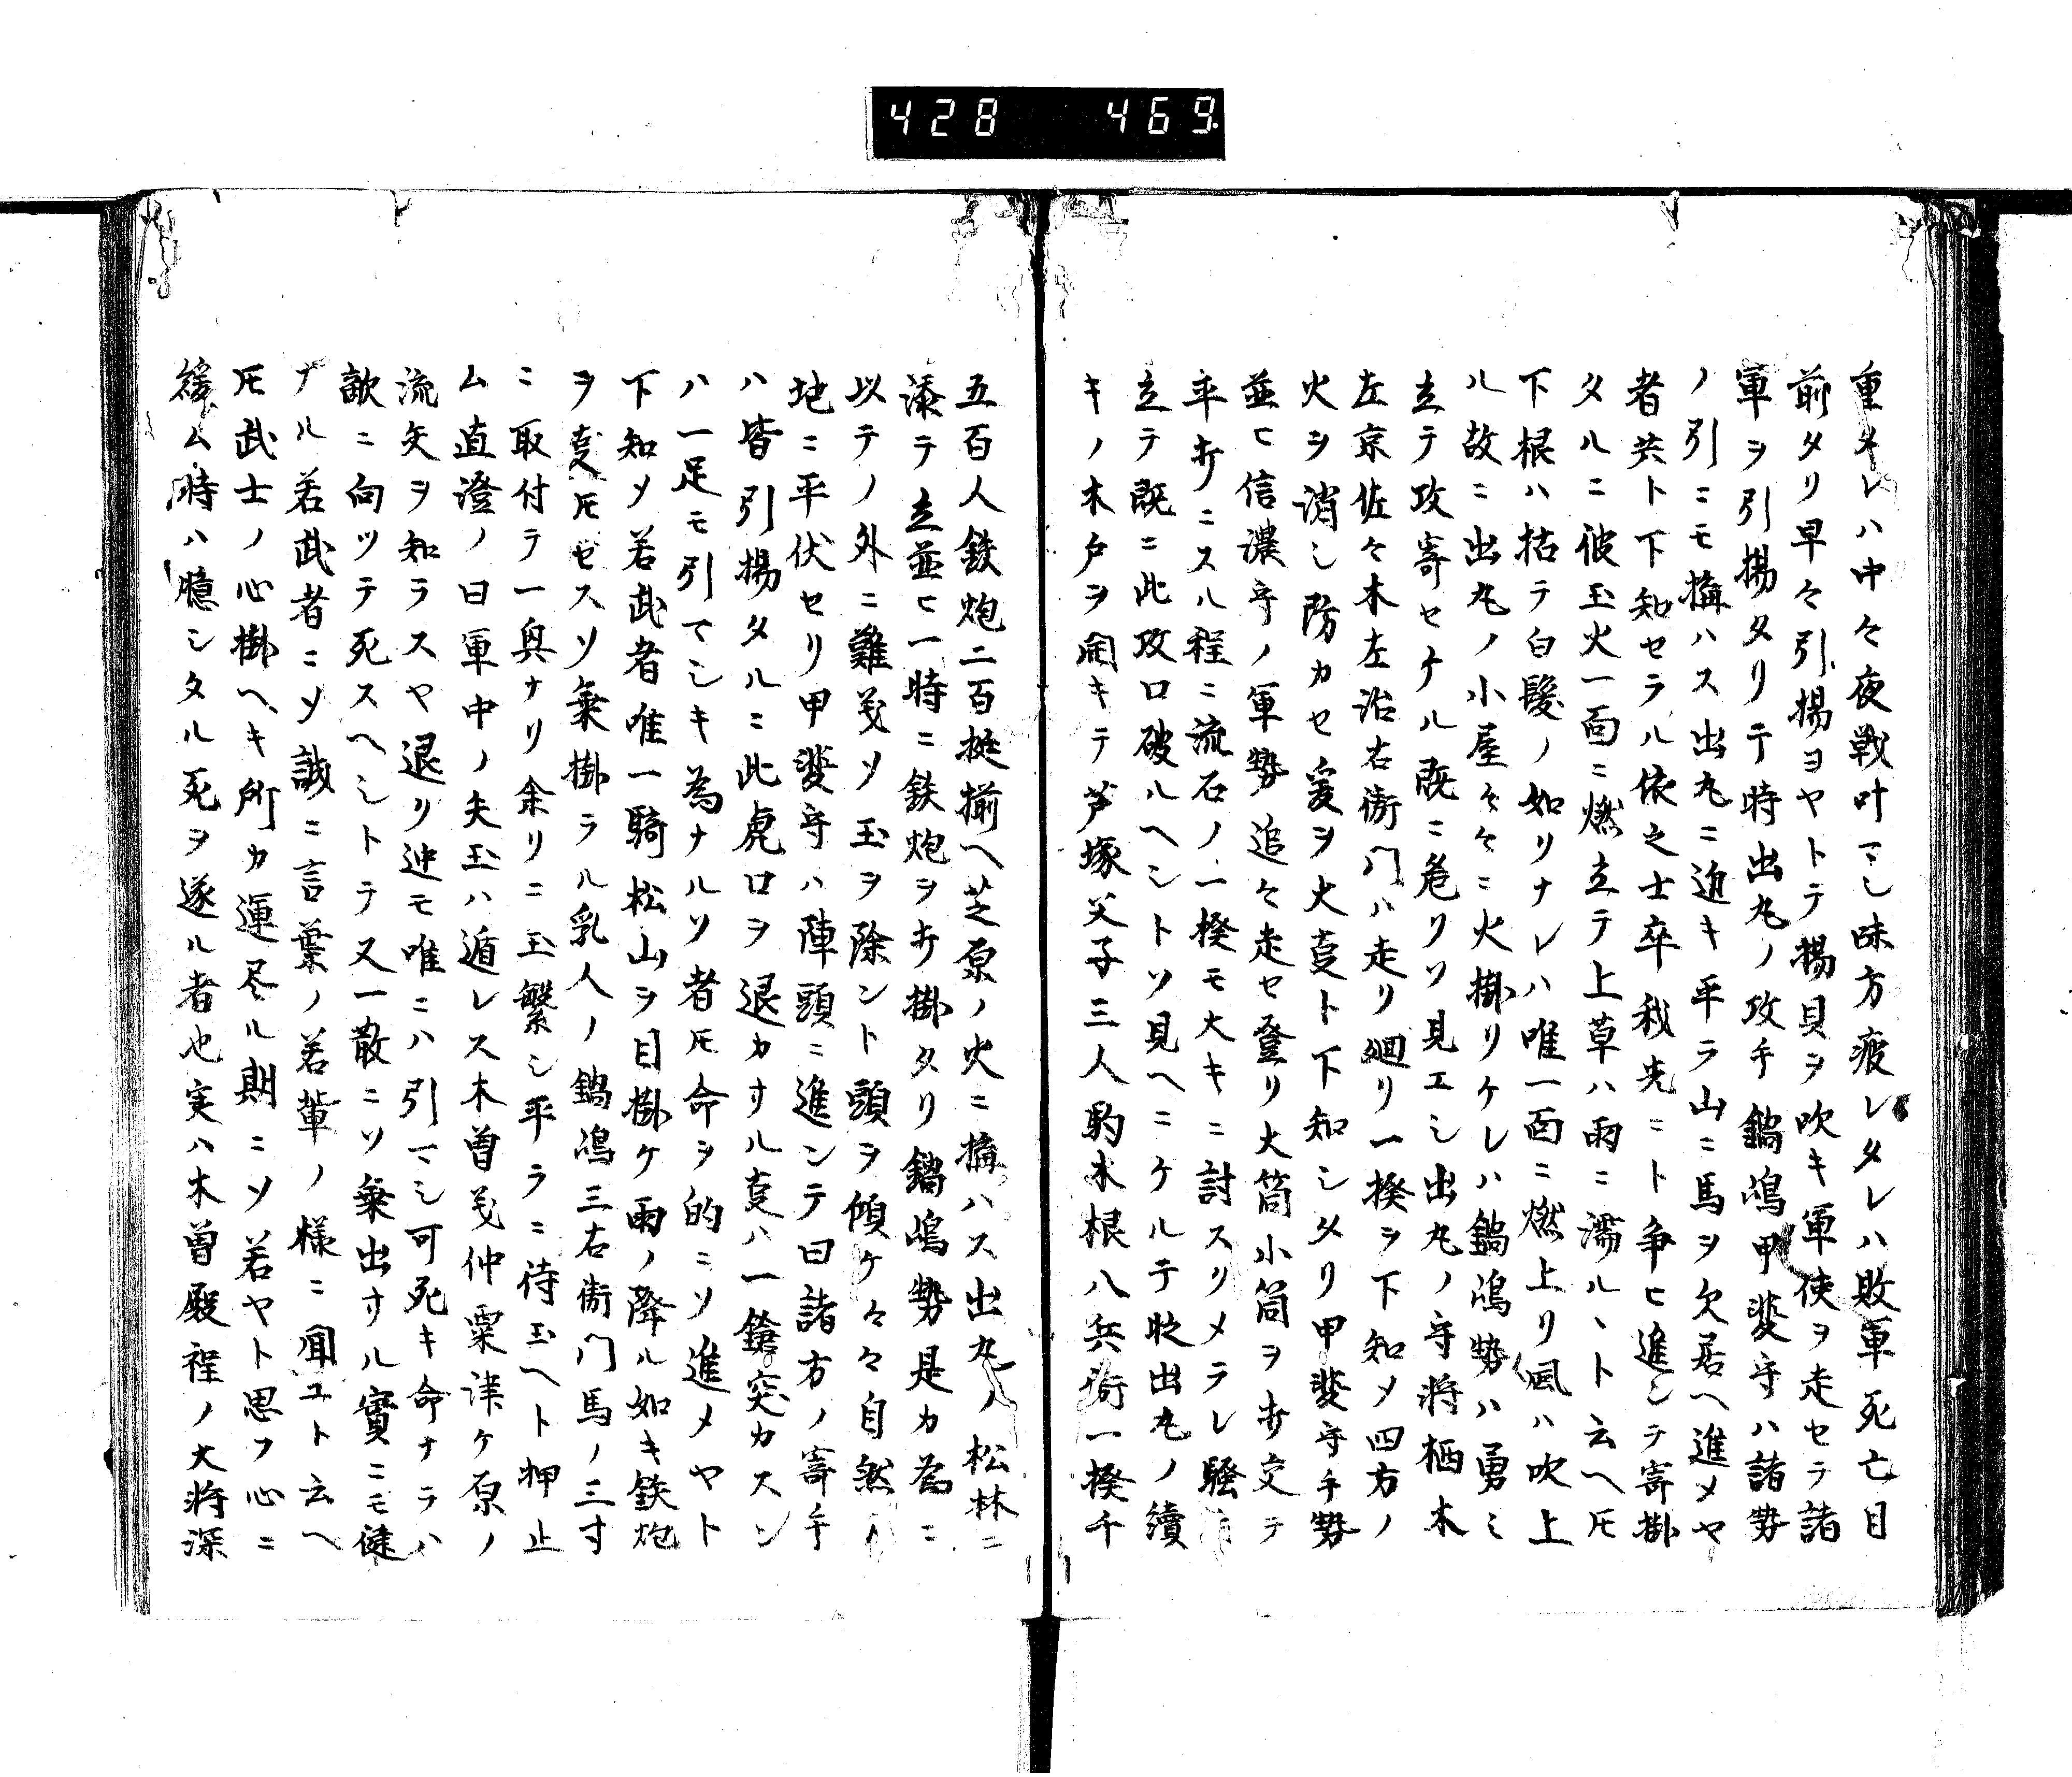 428 469
重タレハ中々夜戦叶マシ味方疲レタレハ敗軍死亡目
前タリ早々引揚ヨヤトテ揚貝ヲ吹キ軍使ヲ走セラ諸
軍ヲ引揚タリテ時出丸ノ攻手鍋嶋甲斐守ハ諸勢
ノ引ニモ搆ハス出丸ニ近キ平ラ山ニ馬ヲ欠居ヘ進メヤ
者共ト下知セラル依之士卒我先ニト争ヒ進ンテ寄掛
タルニ彼玉火一面ニ燃立テ上草ハ雨ニ濡ル、ト云ヘ𪜈
下根ハ枯テ白髪ノ如リナレハ唯一面ニ燃上リ風ハ吹上
ル故ニ出丸ノ小屋々々ニ火掛リケレハ鍋嶋勢ハ勇ミ
立テ攻寄セケル既ニ危リソ見エシ出丸ノ守将栖木
左京佐々木左治右衛門ハ走リ廻リ一揆ヲ下知メ四方ノ
火ヲ消シ防カセ爰ヲ大㕝ト下知シタリ甲斐守手勢
並ヒ信濃守ノ軍勢追々走セ登リ大筒小筒ヲ打交テ
平打ニスル程ニ流石ノ一揆モ大キニ討スリメラレ騒
立テ既ニ此攻口破ルヘシトソ見ヘニケルテ時出丸ノ續
キノ木戸ヲ開キテ芦塚父子三人駒木根八兵衛一揆千
五百人鉄炮二百挺揃ヘ芝原ノ火ニ搆ハス出丸ノ松林ニ
添テ立並ヒ一時ニ鉄炮ヲ打掛タリ鍋嶋勢是カ為ニ
以テノ外ニ難義ソ玉ヲ除ント頭ヲ傾ケ々々自然ト
地ニ平伏セリ甲斐守ハ陣頭ニ進ンテ曰諸方ノ寄手
ハ皆引揚タルニ此虎口ヲ退カサル㕝ハ一鎗突カスン
ハ一足モ引マシキ為ナルソ者𪜈命ヲ的ニソ進メヤト
下知メ若武者唯一騎松山ヲ目掛ケ雨ノ降ル如キ鉄炮
ヲ㕝𪜈セスソ乗掛ラル乳人ノ鍋嶋三右衛門馬ノ三寸
ニ取付テ一興ナリ余リニ玉繁シ平ラニ待玉ヘト押止
ム直澄ノ曰軍中ノ矢玉ハ遁レス木曽義仲粟津ケ原ノ
流矢ヲ知ラスヤ退リ迚モ唯ニハ引マシ可死キ命ナラハ
敵ニ向ツテ死スヘシトテ又一散ニソ乗出サル實ニモ健
ナル若武者ニソ誠ニ言葉ノ若輩ノ様ニ聞ユト云ヘ
𪜈武士ノ心掛ヘキ所カ運尽ル期ニソ若ヤト思フ心ニ
緩ム時ハ臆シタル死ヲ遂ル者也実ハ木曽殿程ノ大将深